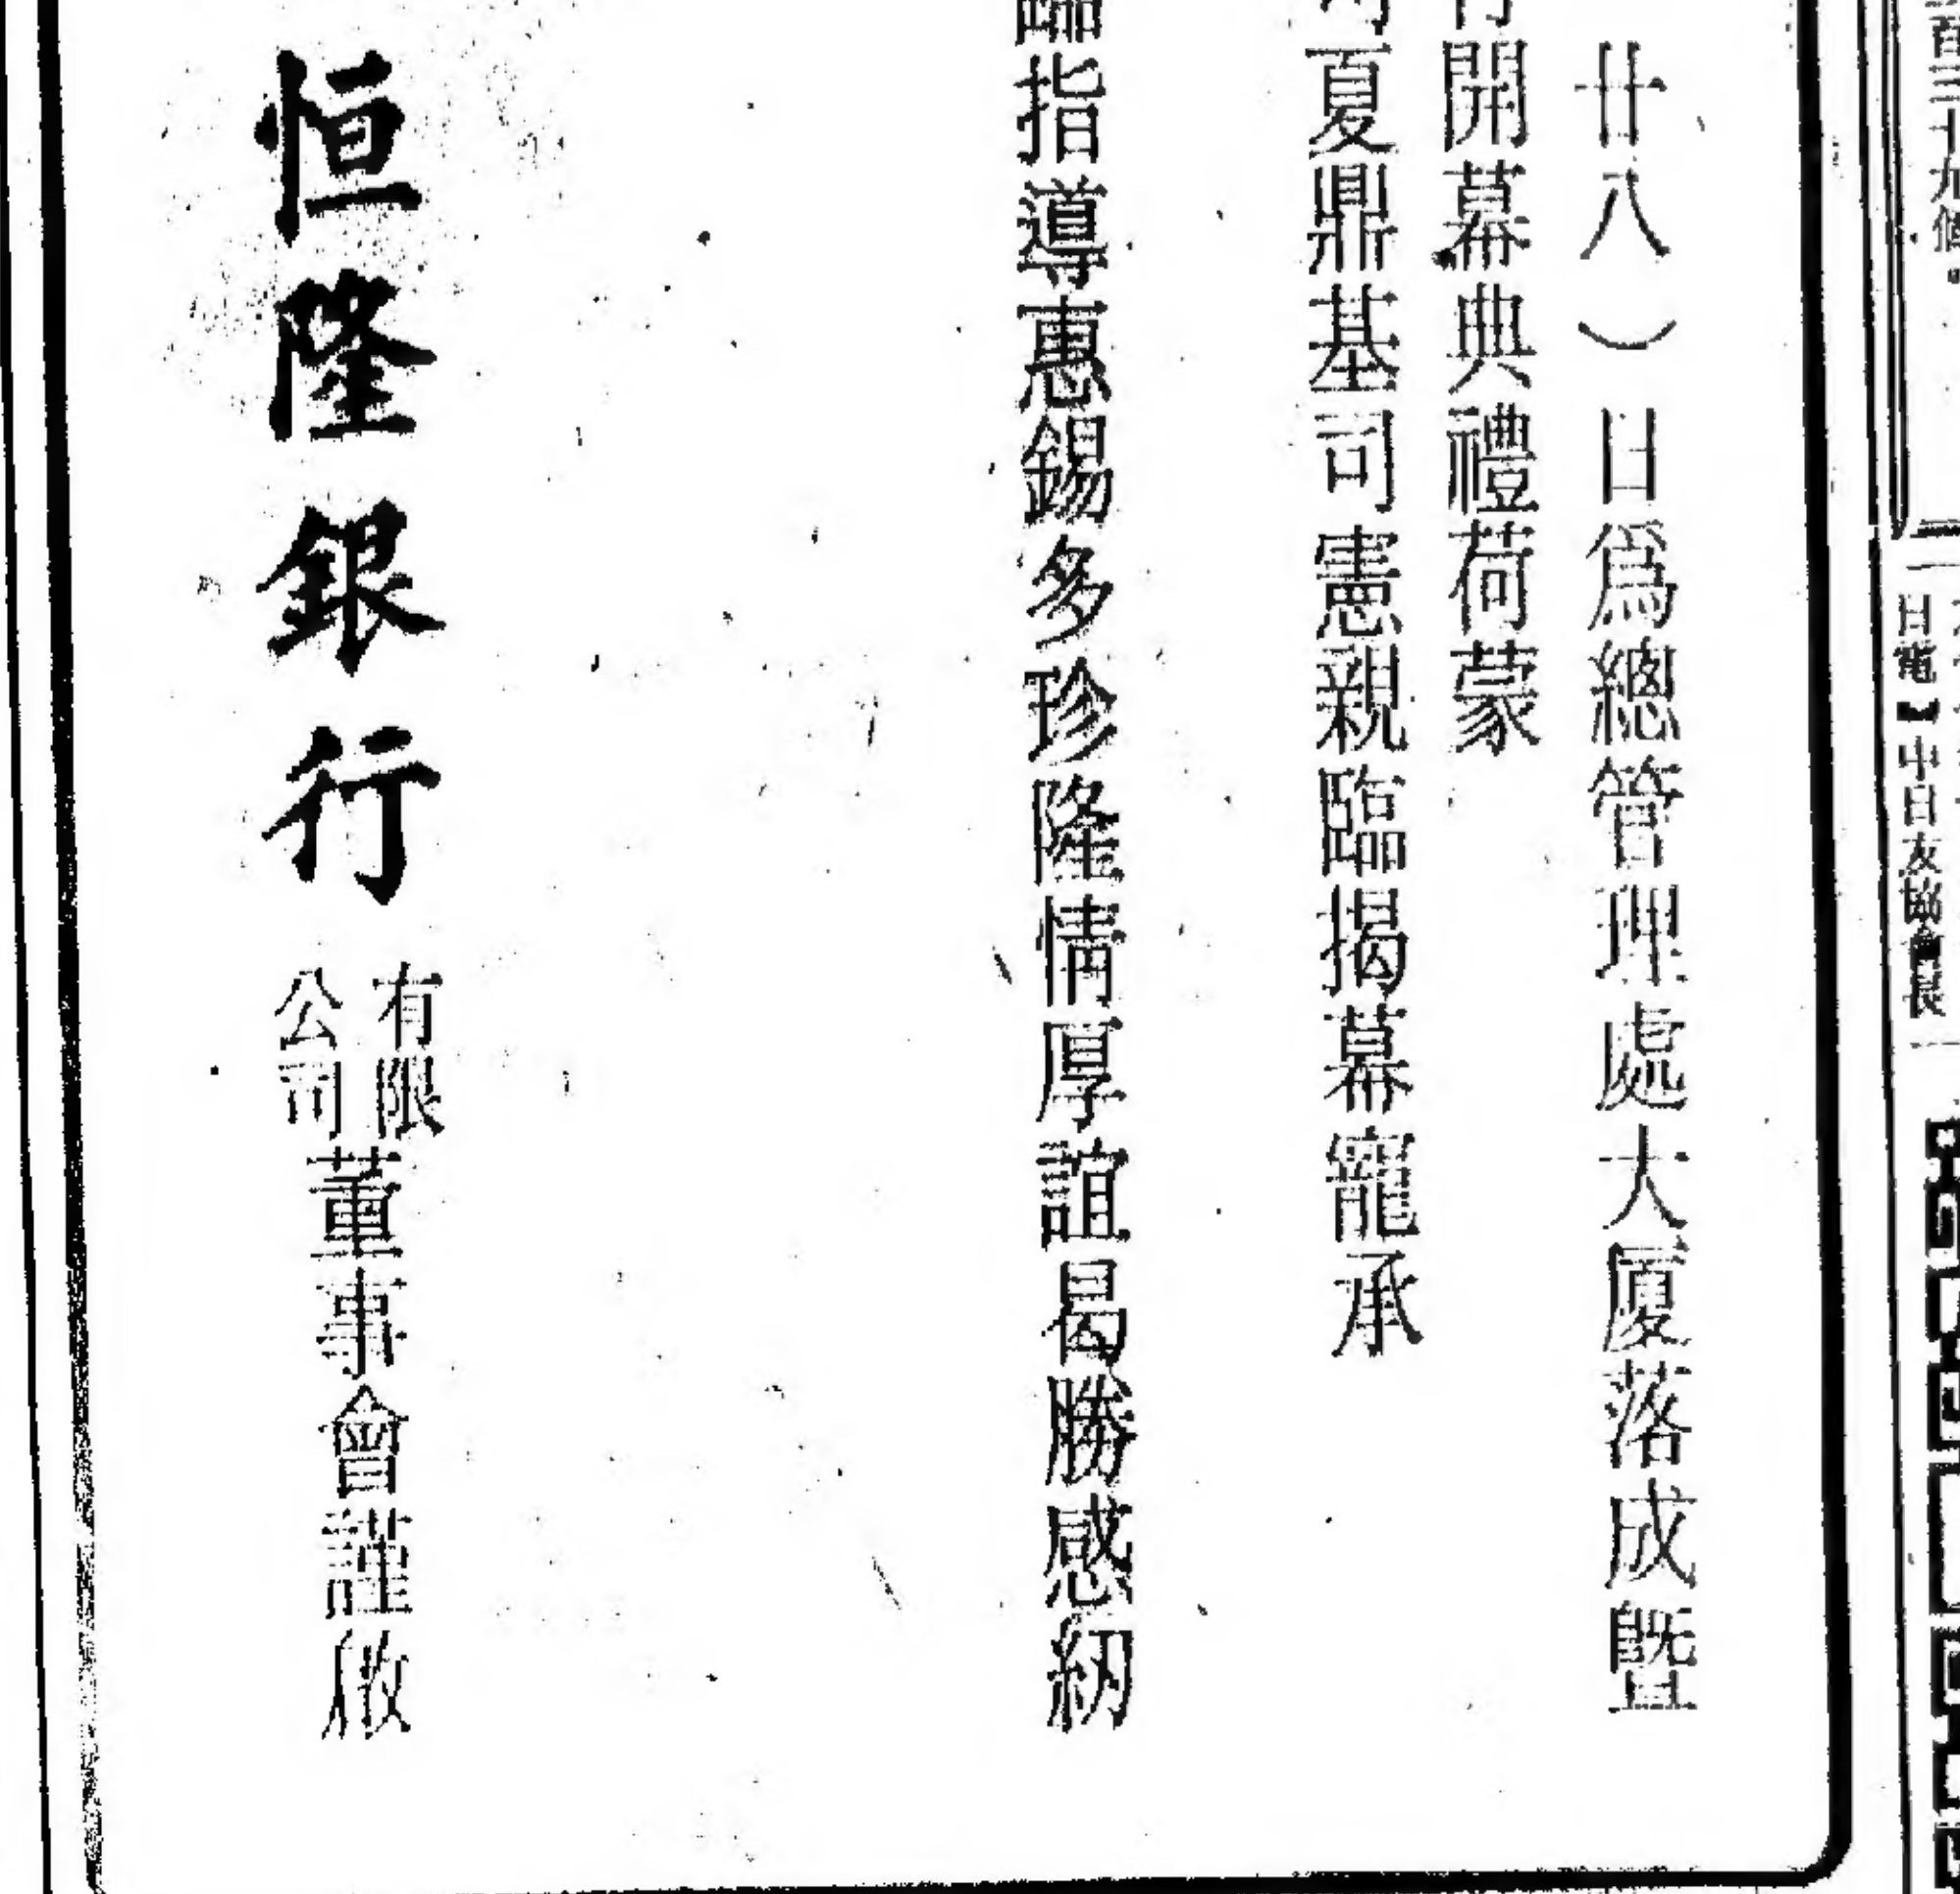 廿八)日爲總管理處大厦落成曁
行開幕典禮荷蒙
司夏鼎基司憲親臨揭幕寵承
臨指導惠錫多珍隆情厚誼曷勝感紉
恒隆銀行
有限
公司
董事會謹啟
日電【中日友協會長